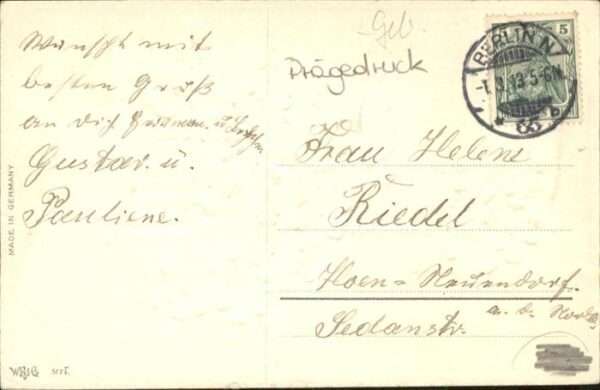 Wunscht mit
besten Gruß
an dich Hermann. u
Gustav. u.
Pauliene.
MADE IN GERMANY
WRIG
Geb.
Prägedruck
5
BERLIN N.
-1.3.13.5-6N.
65
b
Frau Helene
Riedel
Hoen=Neuendorf.
a. d. Nordb.
Sedanstr.